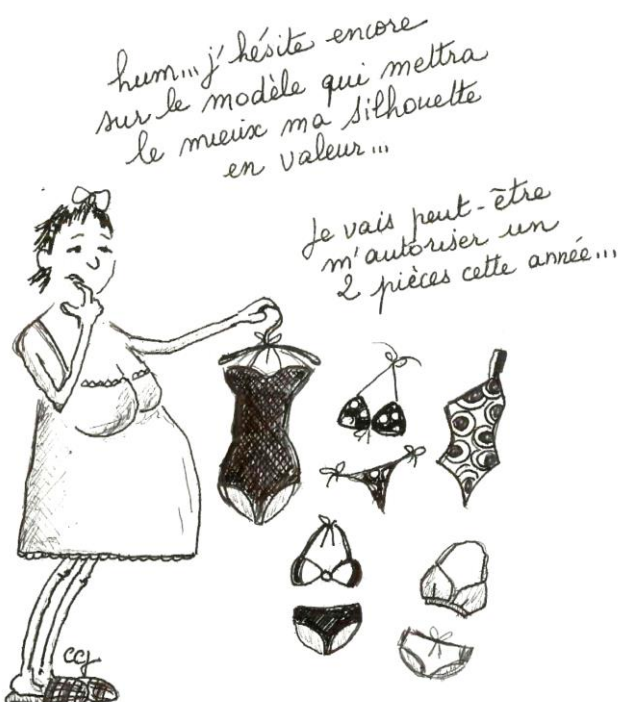 hum... j'hésite encore
sur le modèle qui mettra
le mieux ma silhouette
en valeur...
Je vais peut-être
m'autoriser un
2 pièces cette année...
CCJ